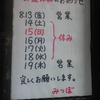 8/13(金) 営業
14(土)
15(日)
16(月) 休み
17(火)
18(水)
19(木) 営業
よろしくお願いします。
みつば